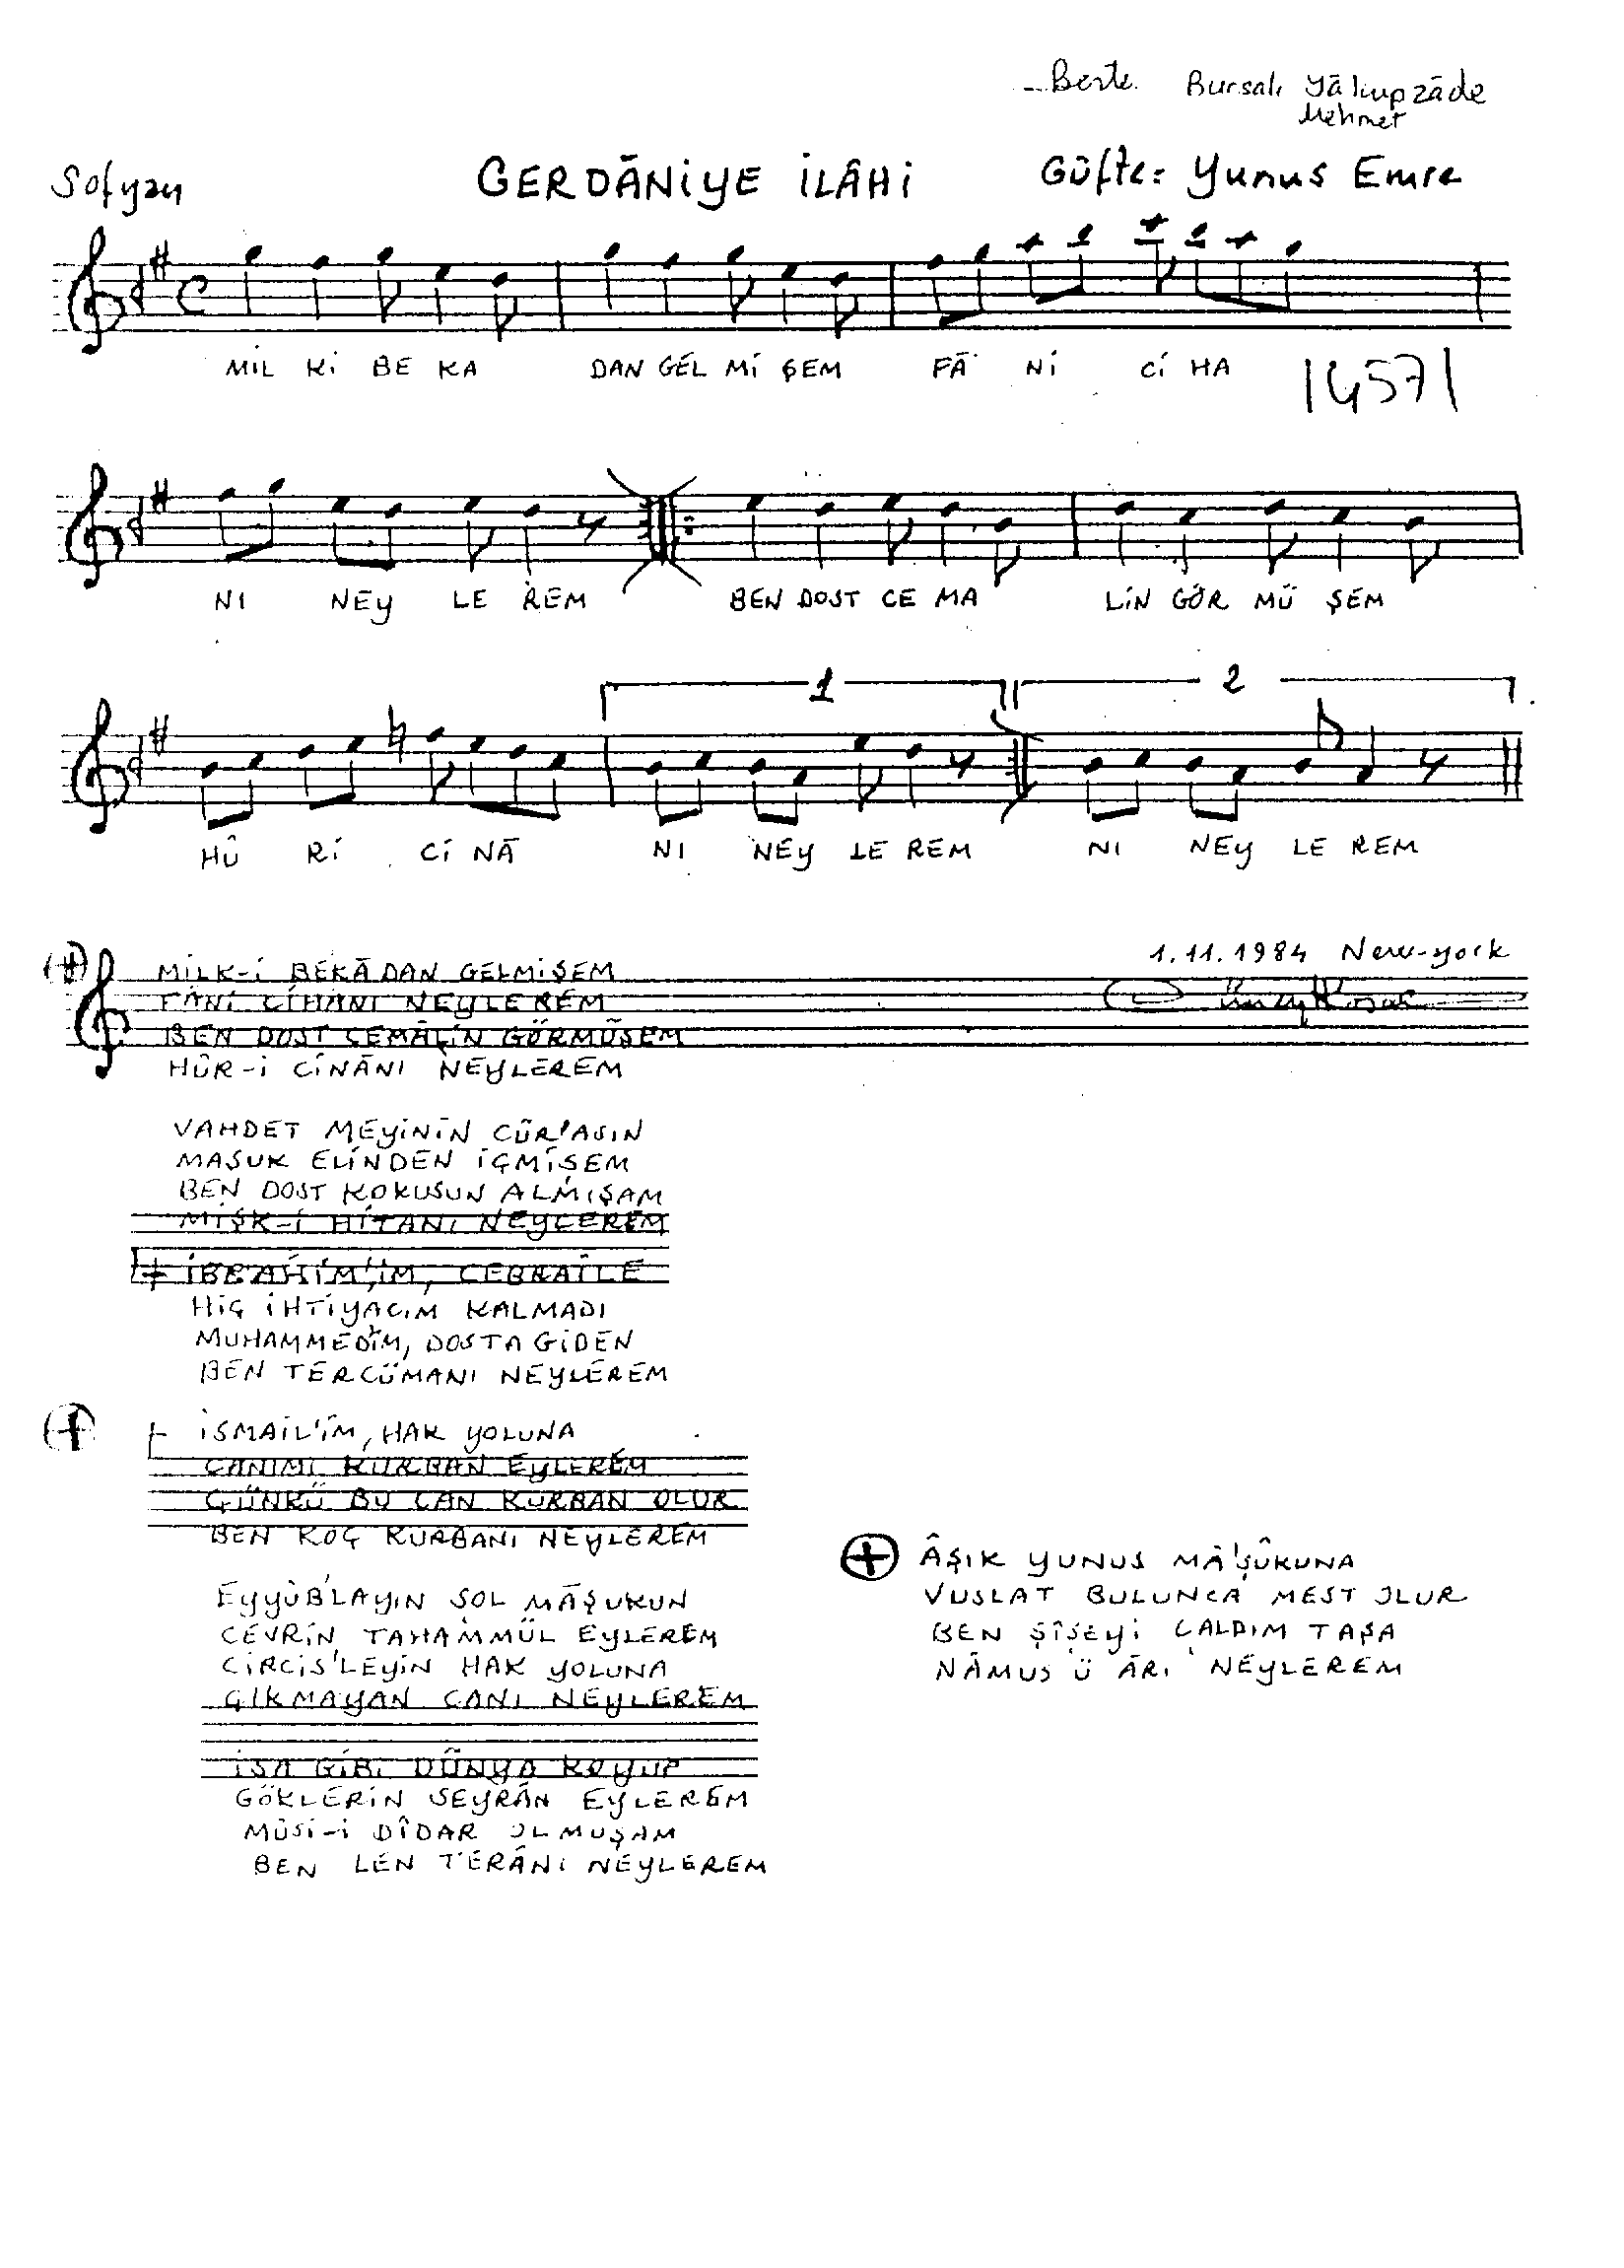 Beste. Bursalı Yâkupzâde
Mehmet
Sofyan GERDÂNİYE İLÂHİ Güfte: Yunus Emre
MİL Kİ BE KA DAN GEL Mİ ŞEM FÂ Nİ Cİ HA
14571
NI NEY LE REM BEN DOST CE MA LİN GÖR MÜ ŞEM
1 2
HÛ Rİ Cİ NÂ NI NEY LE REM NI NEY LE REM
1.11.1984 New-york
MİLK-İ BEKÂDAN GELMİŞEM
FÂNİ CİHANI NEYLEREM
BEN DOST CEMÂLİN GÖRMÜŞEM
HÛR-İ CİNÂNI NEYLEREM
VAHDET MEYİNİN CÛR'ASIN
MAŞUK ELİNDEN İÇMİŞEM
BEN DOST KOKUSUN ALMIŞAM
MİŞK-İ HİTANI NEYLEREM
İBRAHİM'İM, CEBRAÎLE
HİÇ İHTİYACIM KALMADI
MUHAMMED'İM, DOSTA GİDEN
BEN TERCÜMANI NEYLEREM
İSMAİL'İM, HAK YOLUNA
CANIMI KURBAN EYLEREM
ÇÜNKÜ BU CAN KURBAN OLUR
BEN KOÇ KURBANI NEYLEREM
EYYÛB'LAYIN ŞOL MÂŞUKUN
CEVRİN TAHAMMÜL EYLEREM
CİRCİS'LEYİN HAK YOLUNA
ÇIKMAYAN CANI NEYLEREM
İSA GİBİ DÜNYA KOYUP
GÖKLERİN SEYRÂN EYLEREM
MÛSİ-İ DÎDAR OLMUŞAM
BEN LEN TERÂNİ NEYLEREM
ÂŞIK YUNUS MÂ'ŞÛKUNA
VUSLAT BULUNCA MEST OLUR
BEN ŞÎŞEYİ ÇALDIM TAŞA
NÂMUS Ü ÂRI NEYLEREM